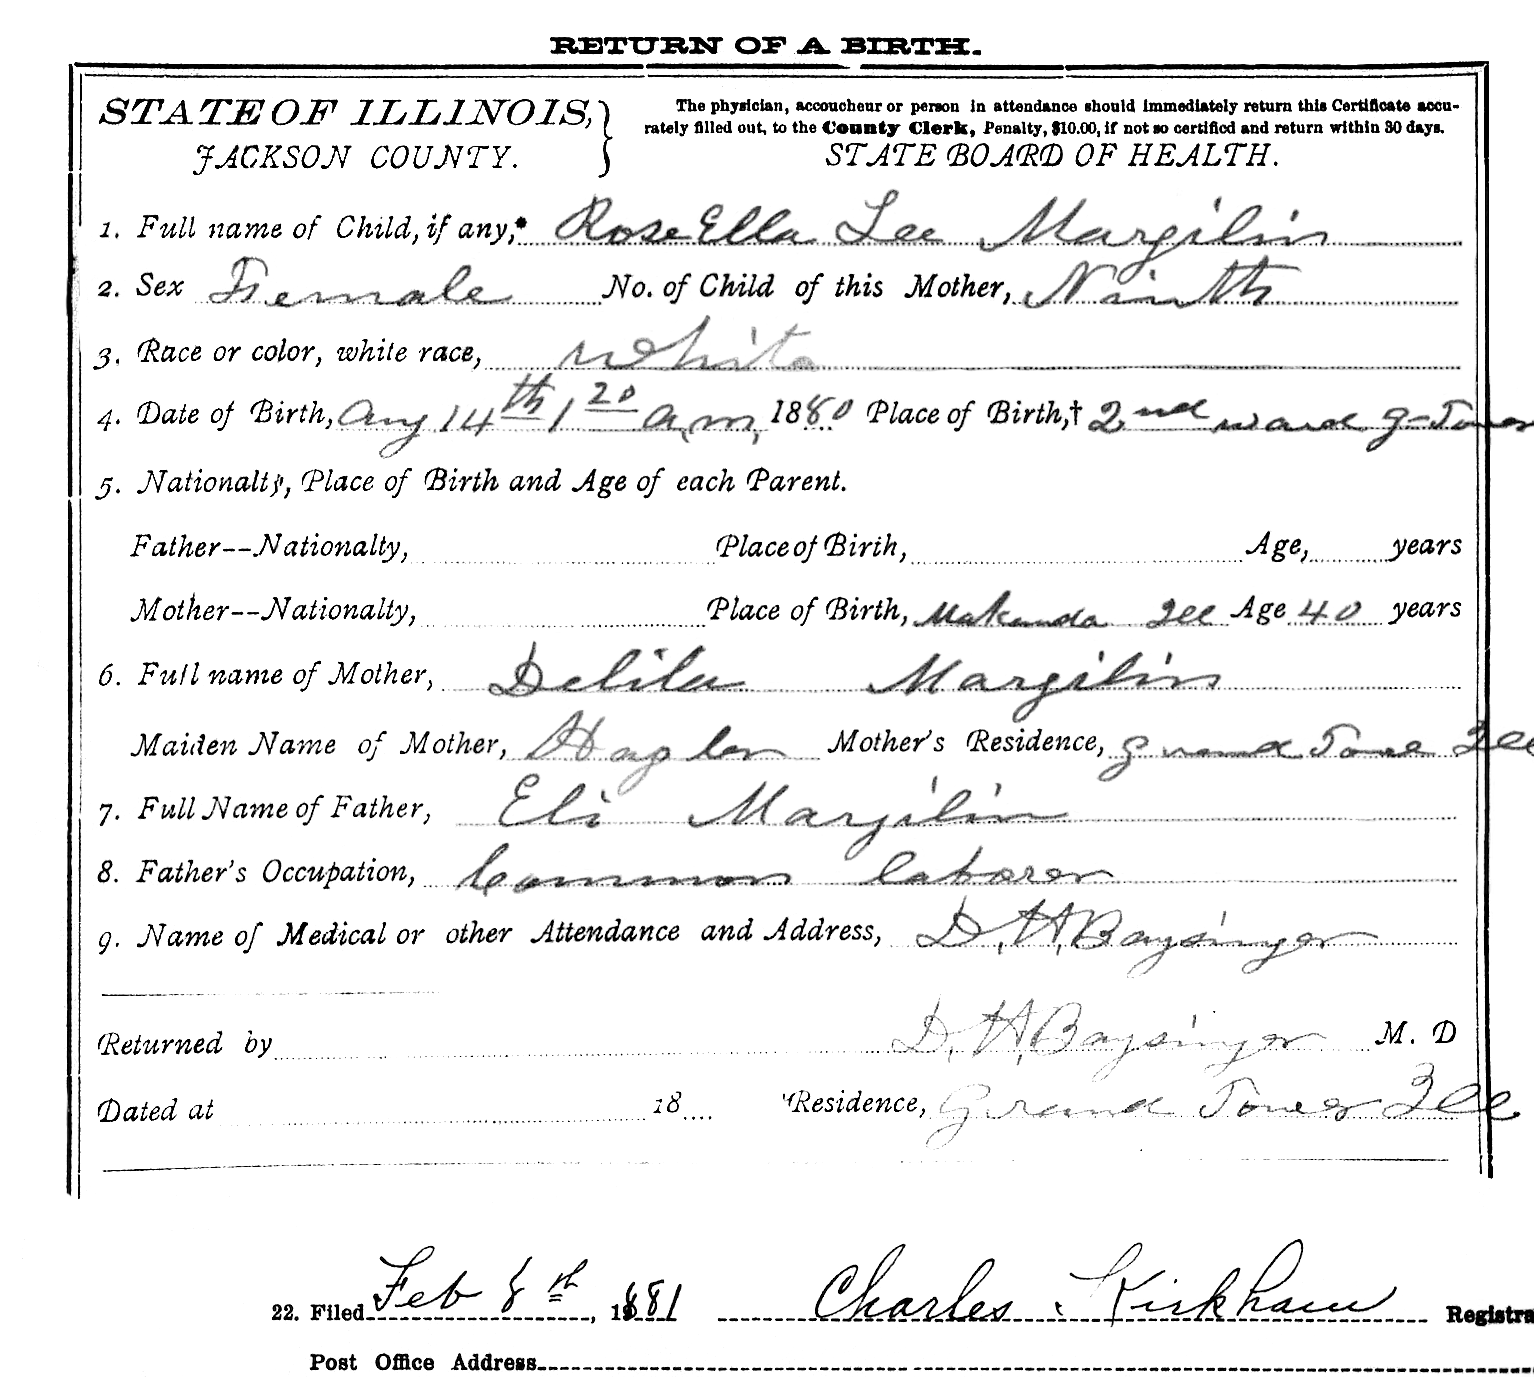 RETURN OF A BIRTH.
STATE OF ILLINOIS,
JACKSON COUNTY.
The physician, accoucheur or person in attendance should immediately return this Certificate accu-
rately filled out, to the County Clerk, Penalty, $10.00, if not so certified and return within 30 days.
STATE BOARD OF HEALTH.
1. Full name of Child, if any,* RoseElla Lee Margilin
2. Sex Female No. of Child of this Mother, Ninth
3. Race or color, white race, White
4. Date of Birth, Aug 14th 1 20 a.m, 1880 Place of Birth,† 2nd ward G-Tower
5. Nationalty, Place of Birth and Age of each Parent.
Father--Nationalty, Place of Birth, Age, years
Mother--Nationalty, Place of Birth, Makanda Ill Age 40 years
6. Full name of Mother, Delila Margilin
Maiden Name of Mother, Hagler Mother's Residence, Grand Tower Ill
7. Full Name of Father, Eli Margilin
8. Father's Occupation, Common laborer
9. Name of Medical or other Attendance and Address, D. H. Baysinger
Returned by D. H. Baysinger M. D
Dated at 18 Residence, Grand Tower Ill
22. Filed Feb 8th, 1881 Charles Kirkham Registra
Post Office Address